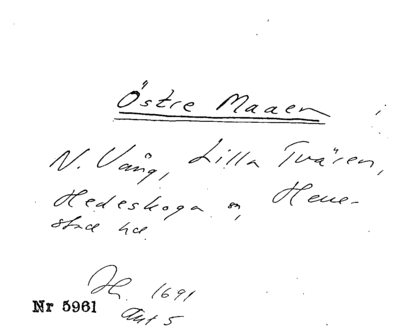 Östre Maaen
N. Vång, Lilla Tvären,
Hedeskoga o, Heve-
stad hd.
Jh. 1691
Akt 5
Nr 5961